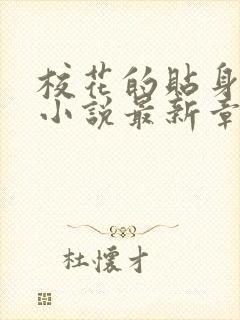 校花的貼身
小說最新章
杜懷才